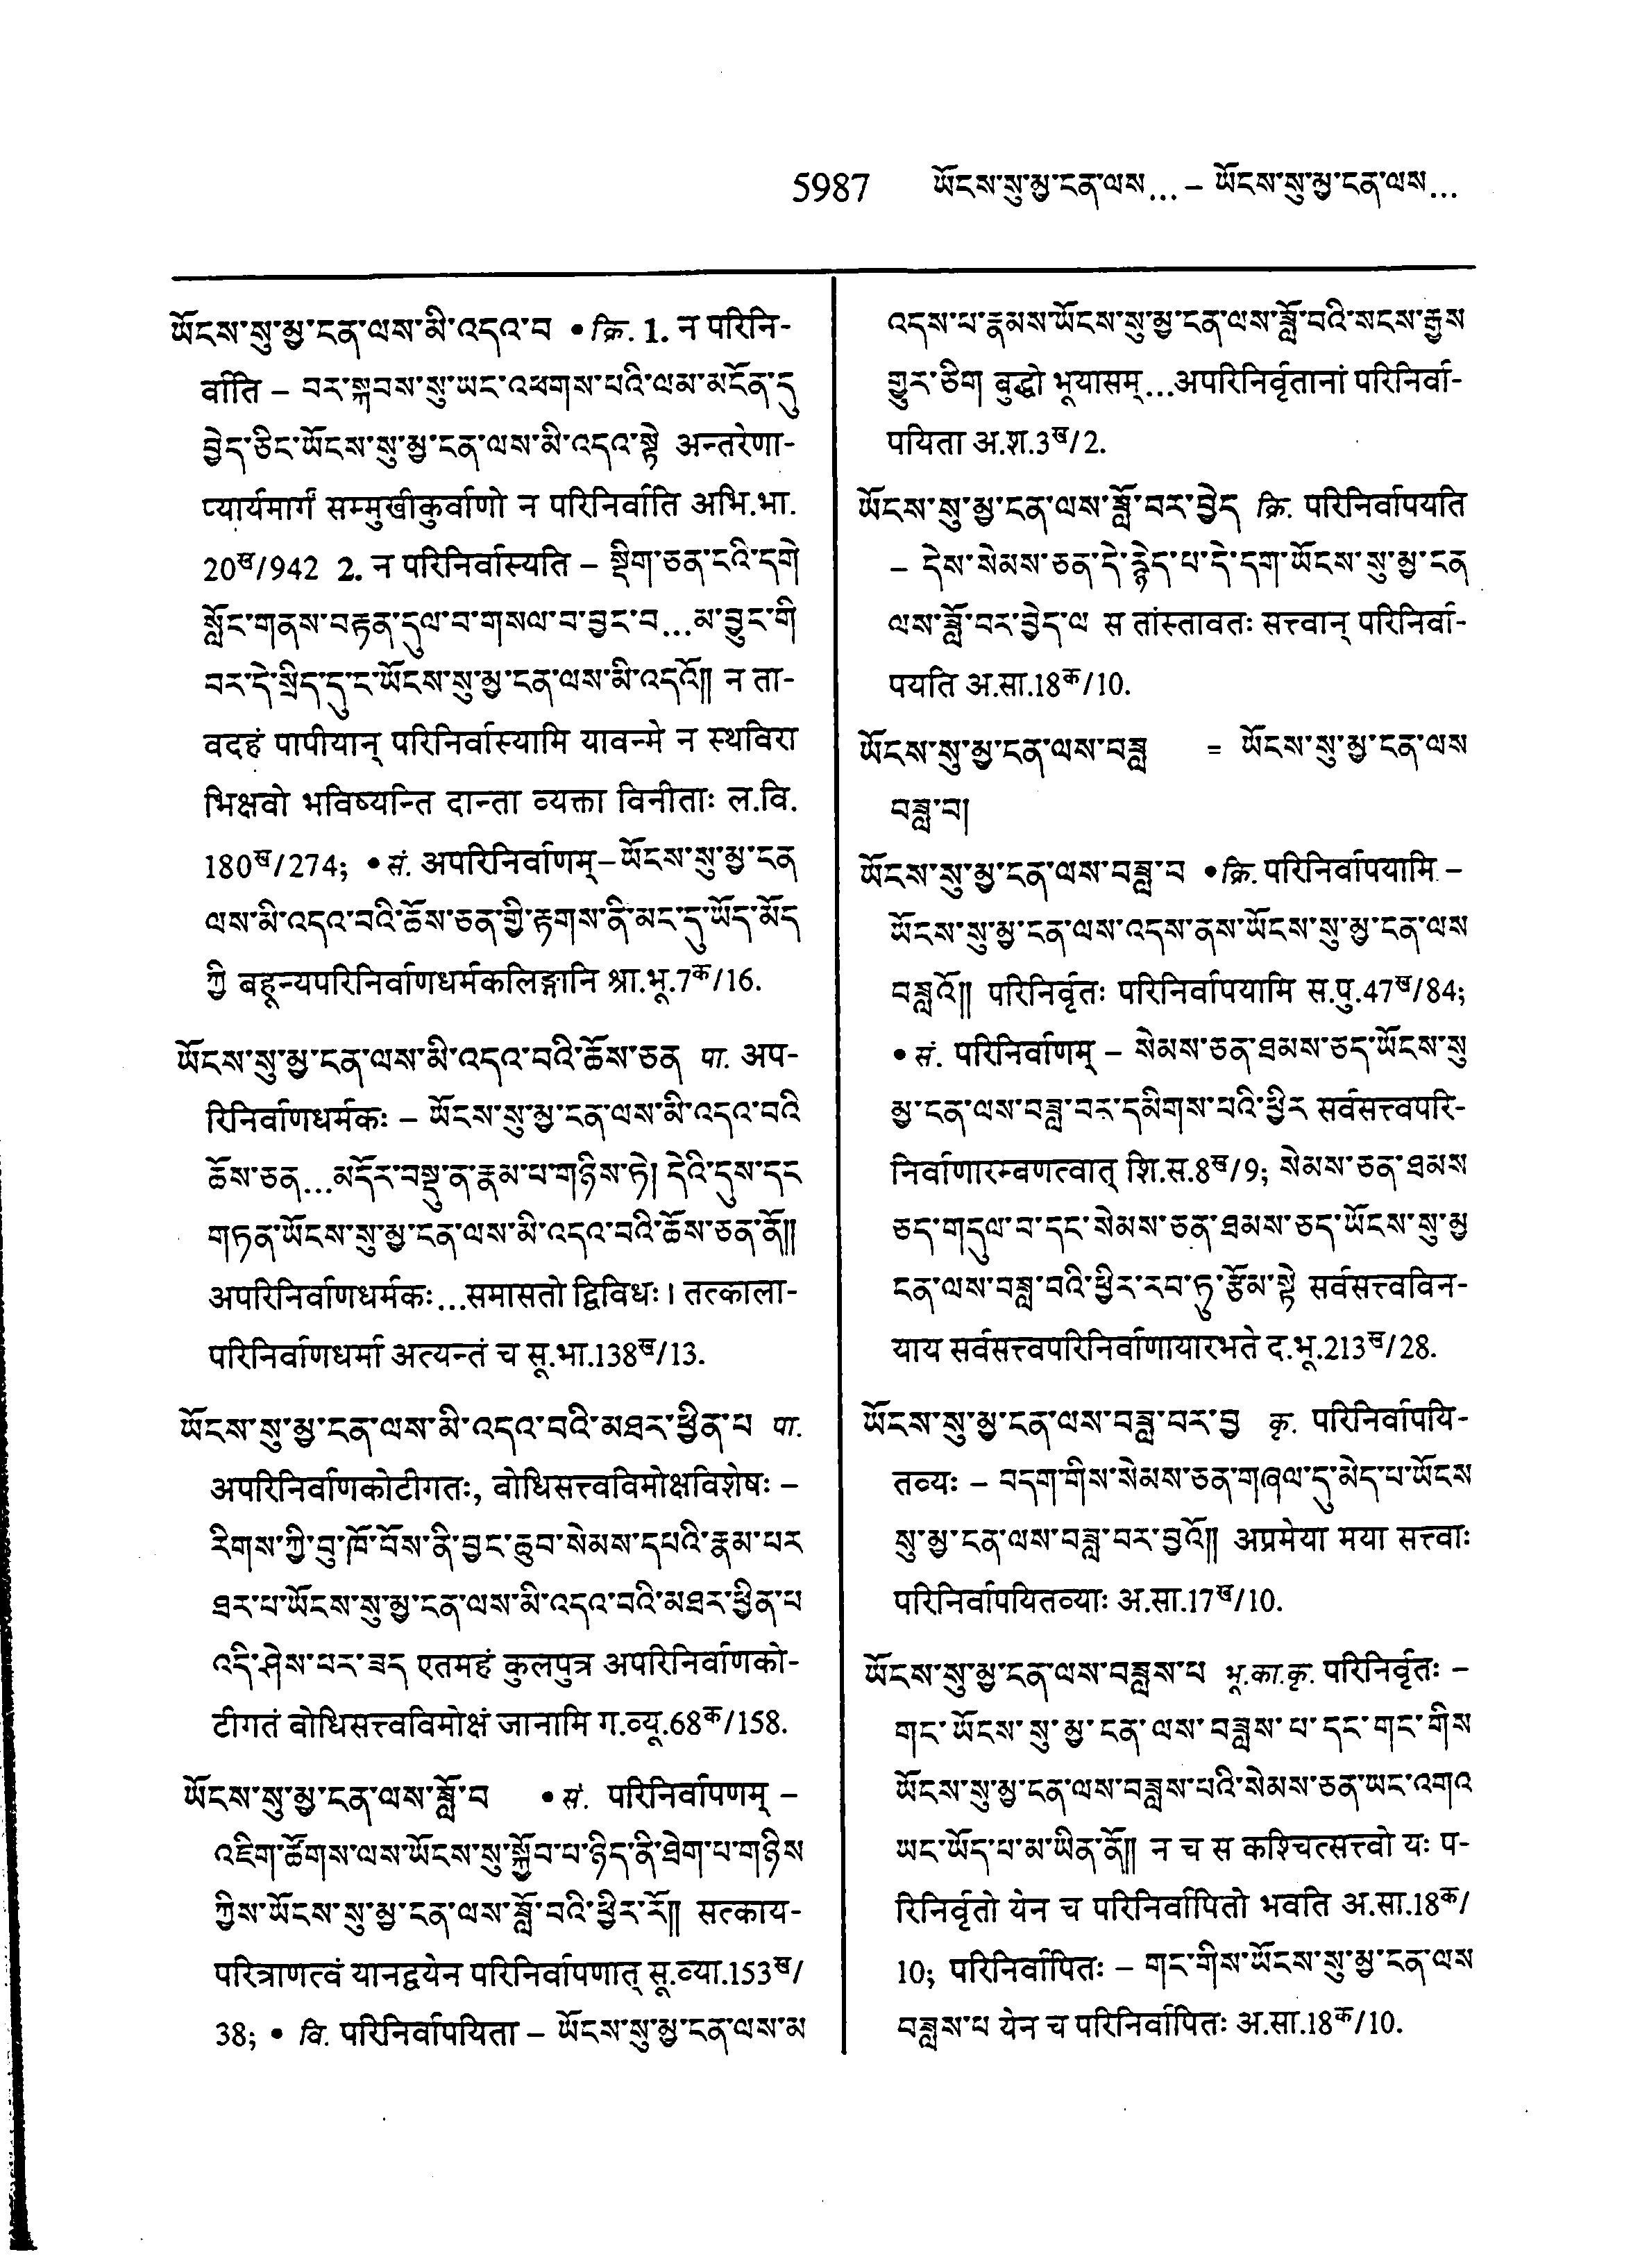 5987 ཡོངས་སུ་མྱ་ངན་ལས... – ཡོངས་སུ་མྱ་ངན་ལས...
ཡོངས་སུ་མྱ་ངན་ལས་མི་འདའ་བ • क्रि. 1. न परिनि-
र्वाति – བར་སྐབས་སུ་ཡང་འཕགས་པའི་ལམ་མངོན་དུ
བྱེད་ཅིང་ཡོངས་སུ་མྱ་ངན་ལས་མི་འདའ་སྟེ अन्तरेणा-
प्यार्यमार्गं सम्मुखीकुर्वाणो न परिनिर्वाति अभि.भा.
20ख/942 2. न परिनिर्वास्यति – སྡིག་ཅན་ངའི་དགེ
སློང་གནས་བརྟན་དུལ་བ་གསལ་བ་བྱང་བ...མ་བྱུང་གི
བར་དེ་སྲིད་དུ་ང་ཡོངས་སུ་མྱ་ངན་ལས་མི་འདའོ།། न ता-
वदहं पापीयान् परिनिर्वास्यामि यावन्मे न स्थविरा
भिक्षवो भविष्यन्ति दान्ता व्यक्ता विनीताः ल.वि.
180ख/274; • सं. अपरिनिर्वाणम् – ཡོངས་སུ་མྱ་ངན
ལས་མི་འདའ་བའི་ཆོས་ཅན་གྱི་རྟགས་ནི་མང་དུ་ཡོད་མོད
ཀྱི बहून्यपरिनिर्वाणधर्मकलिङ्गानि श्रा.भू.7क/16.
ཡོངས་སུ་མྱ་ངན་ལས་མི་འདའ་བའི་ཆོས་ཅན पा. अप-
रिनिर्वाणधर्मकः – ཡོངས་སུ་མྱ་ངན་ལས་མི་འདའ་བའི
ཆོས་ཅན...མདོར་བསྡུ་ན་རྣམ་པ་གཉིས་ཏེ། དེའི་དུས་དང
གཏན་ཡོངས་སུ་མྱ་ངན་ལས་མི་འདའ་བའི་ཆོས་ཅན་ནོ།།
अपरिनिर्वाणधर्मकः...समासतो द्विविधः। तत्काला-
परिनिर्वाणधर्मा अत्यन्तं च सू.भा.138ख/13.
ཡོངས་སུ་མྱ་ངན་ལས་མི་འདའ་བའི་མཐར་ཕྱིན་པ पा.
अपरिनिर्वाणकोटीगतः, बोधिसत्त्वविमोक्षविशेषः –
རིགས་ཀྱི་བུ་ཁོ་བོས་ནི་བྱང་ཆུབ་སེམས་དཔའི་རྣམ་པར
ཐར་པ་ཡོངས་སུ་མྱ་ངན་ལས་མི་འདའ་བའི་མཐར་ཕྱིན་པ
འདི་ཤེས་པར་ཟད एतमहं कुलपुत्र अपरिनिर्वाणको-
टीगतं बोधिसत्त्वविमोक्षं जानामि ग.व्यू.68क/158.
ཡོངས་སུ་མྱ་ངན་ལས་ཟློ་བ • सं. परिनिर्वापणम् –
འཇིག་ཚོགས་ལས་ཡོངས་སུ་སྐྱོབ་པ་ཉིད་ནི་ཐེག་པ་གཉིས
ཀྱིས་ཡོངས་སུ་མྱ་ངན་ལས་ཟློ་བའི་ཕྱིར་རོ།། सत्काय-
परित्राणत्वं यानद्वयेन परिनिर्वापणात् सू.व्या.153ख/
38; • वि. परिनिर्वापयिता – ཡོངས་སུ་མྱ་ངན་ལས་མ
འདས་པ་རྣམས་ཡོངས་སུ་མྱ་ངན་ལས་ཟློ་བའི་སངས་རྒྱས
གྱུར་ཅིག बुद्धो भूयासम्...अपरिनिर्वृतानां परिनिर्वा-
पयिता अ.श.3ख/2.
ཡོངས་སུ་མྱ་ངན་ལས་ཟློ་བར་བྱེད क्रि. परिनिर्वापयति
– དེས་སེམས་ཅན་དེ་སྙེད་པ་དེ་དག་ཡོངས་སུ་མྱ་ངན
ལས་ཟློ་བར་བྱེད་ལ स तांस्तावतः सत्त्वान् परिनिर्वा-
पयति अ.सा.18क/10.
ཡོངས་སུ་མྱ་ངན་ལས་བཟླ = ཡོངས་སུ་མྱ་ངན་ལས
བཟླ་བ།
ཡོངས་སུ་མྱ་ངན་ལས་བཟླ་བ • क्रि. परिनिर्वापयामि –
ཡོངས་སུ་མྱ་ངན་ལས་འདས་ནས་ཡོངས་སུ་མྱ་ངན་ལས
བཟླའོ།། परिनिर्वृतः परिनिर्वापयामि स.पु.47ख/84;
• सं. परिनिर्वाणम् – སེམས་ཅན་ཐམས་ཅད་ཡོངས་སུ
མྱ་ངན་ལས་བཟླ་བར་དམིགས་པའི་ཕྱིར सर्वसत्त्वपरि-
निर्वाणारम्बणत्वात् शि.स.8ख/9; སེམས་ཅན་ཐམས
ཅད་གདུལ་བ་དང་སེམས་ཅན་ཐམས་ཅད་ཡོངས་སུ་མྱ
ངན་ལས་བཟླ་བའི་ཕྱིར་རབ་ཏུ་རྩོམ་སྟེ सर्वसत्त्वविन-
याय सर्वसत्त्वपरिनिर्वाणायारभते द.भू.213ख/28.
ཡོངས་སུ་མྱ་ངན་ལས་བཟླ་བར་བྱ कृ. परिनिर्वापयि-
तव्यः – བདག་གིས་སེམས་ཅན་གཞལ་དུ་མེད་པ་ཡོངས
སུ་མྱ་ངན་ལས་བཟླ་བར་བྱའོ།། अप्रमेया मया सत्त्वाः
परिनिर्वापयितव्याः अ.सा.17ख/10.
ཡོངས་སུ་མྱ་ངན་ལས་བཟླས་པ भू.का.कृ. परिनिर्वृतः –
གང་ཡོངས་སུ་མྱ་ངན་ལས་བཟླས་པ་དང་གང་གིས
ཡོངས་སུ་མྱ་ངན་ལས་བཟླས་པའི་སེམས་ཅན་ཡང་འགའ
ཡང་ཡོད་པ་མ་ཡིན་ནོ།། न च स कश्चित्सत्त्वो यः प-
रिनिर्वृतो येन च परिनिर्वापितो भवति अ.सा.18क/
10; परिनिर्वापितः – གང་གིས་ཡོངས་སུ་མྱ་ངན་ལས
བཟླས་པ येन च परिनिर्वापितः अ.सा.18क/10.